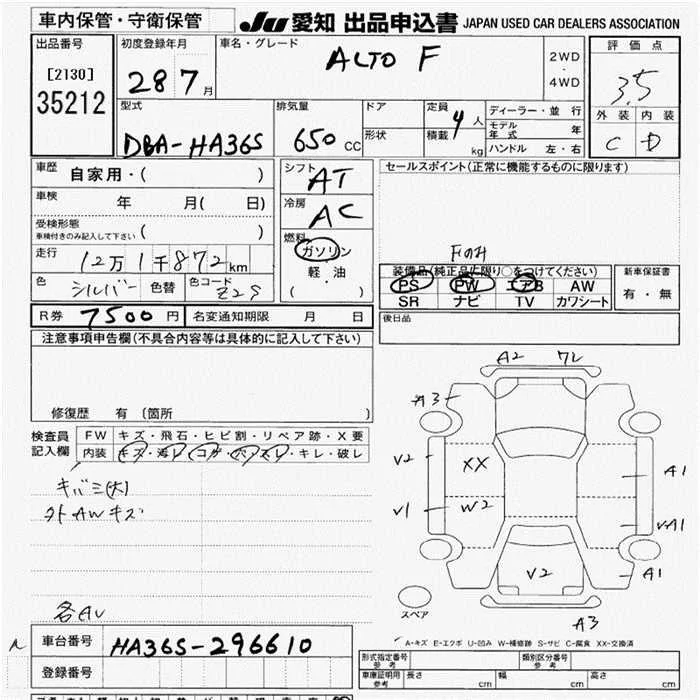 車内保管・守衛保管
JU 愛知 出品申込書 JAPAN USED CAR DEALERS ASSOCIATION
出品番号
[2130]
35212
初度登録年月
28 7 月
車名・グレード
ALTO F
2WD
・
4WD
評価点
3.5
外装 内装
C D
型式
DBA-HA36S
排気量
650 CC
ドア
形状
定員 4 人
積載 kg
ディーラー・並行
モデル年式 年
ハンドル 左・右
車歴
自家用・( )
車検
年 月( 日)
受検形態
車検付きのみ記入して下さい ( )
走行
12万1千872 km
色 シルバー 色替 色コード Z2S
シフト
AT
冷房
AC
燃料
ガソリン
軽・油
( )
セールスポイント(正常に機能するものに限ります)
Fのみ
装備品(純正品に限り○をつけてください)
PS PW エアB AW
SR ナビ TV カワシート
新車保証書
有・無
R券 7500 円 名変通知期限 月 日
後日品
注意事項申告欄(不具合内容等は具体的に記入して下さい)
修復歴 有 〔箇所 〕
検査員
記入欄
FW キズ・飛石・ヒビ割・リペア跡・X要
内装 キズ・汚レ・コガ・穴・スレ・キレ・破レ
キバミ(大)
外AWキズ
各AU
A2
A3
V2
XX
A1
V1
W2
VA1
V2
A1
スペア
A3
A-キズ E-エクボ U-凹み W-補修跡 S-サビ C-腐食 XX-交換済
車台番号 HA36S-296610
登録番号
形式指定番号
参考
類別区分番号
参考
車庫証明用
参考
長さ cm 幅 cm 高さ cm